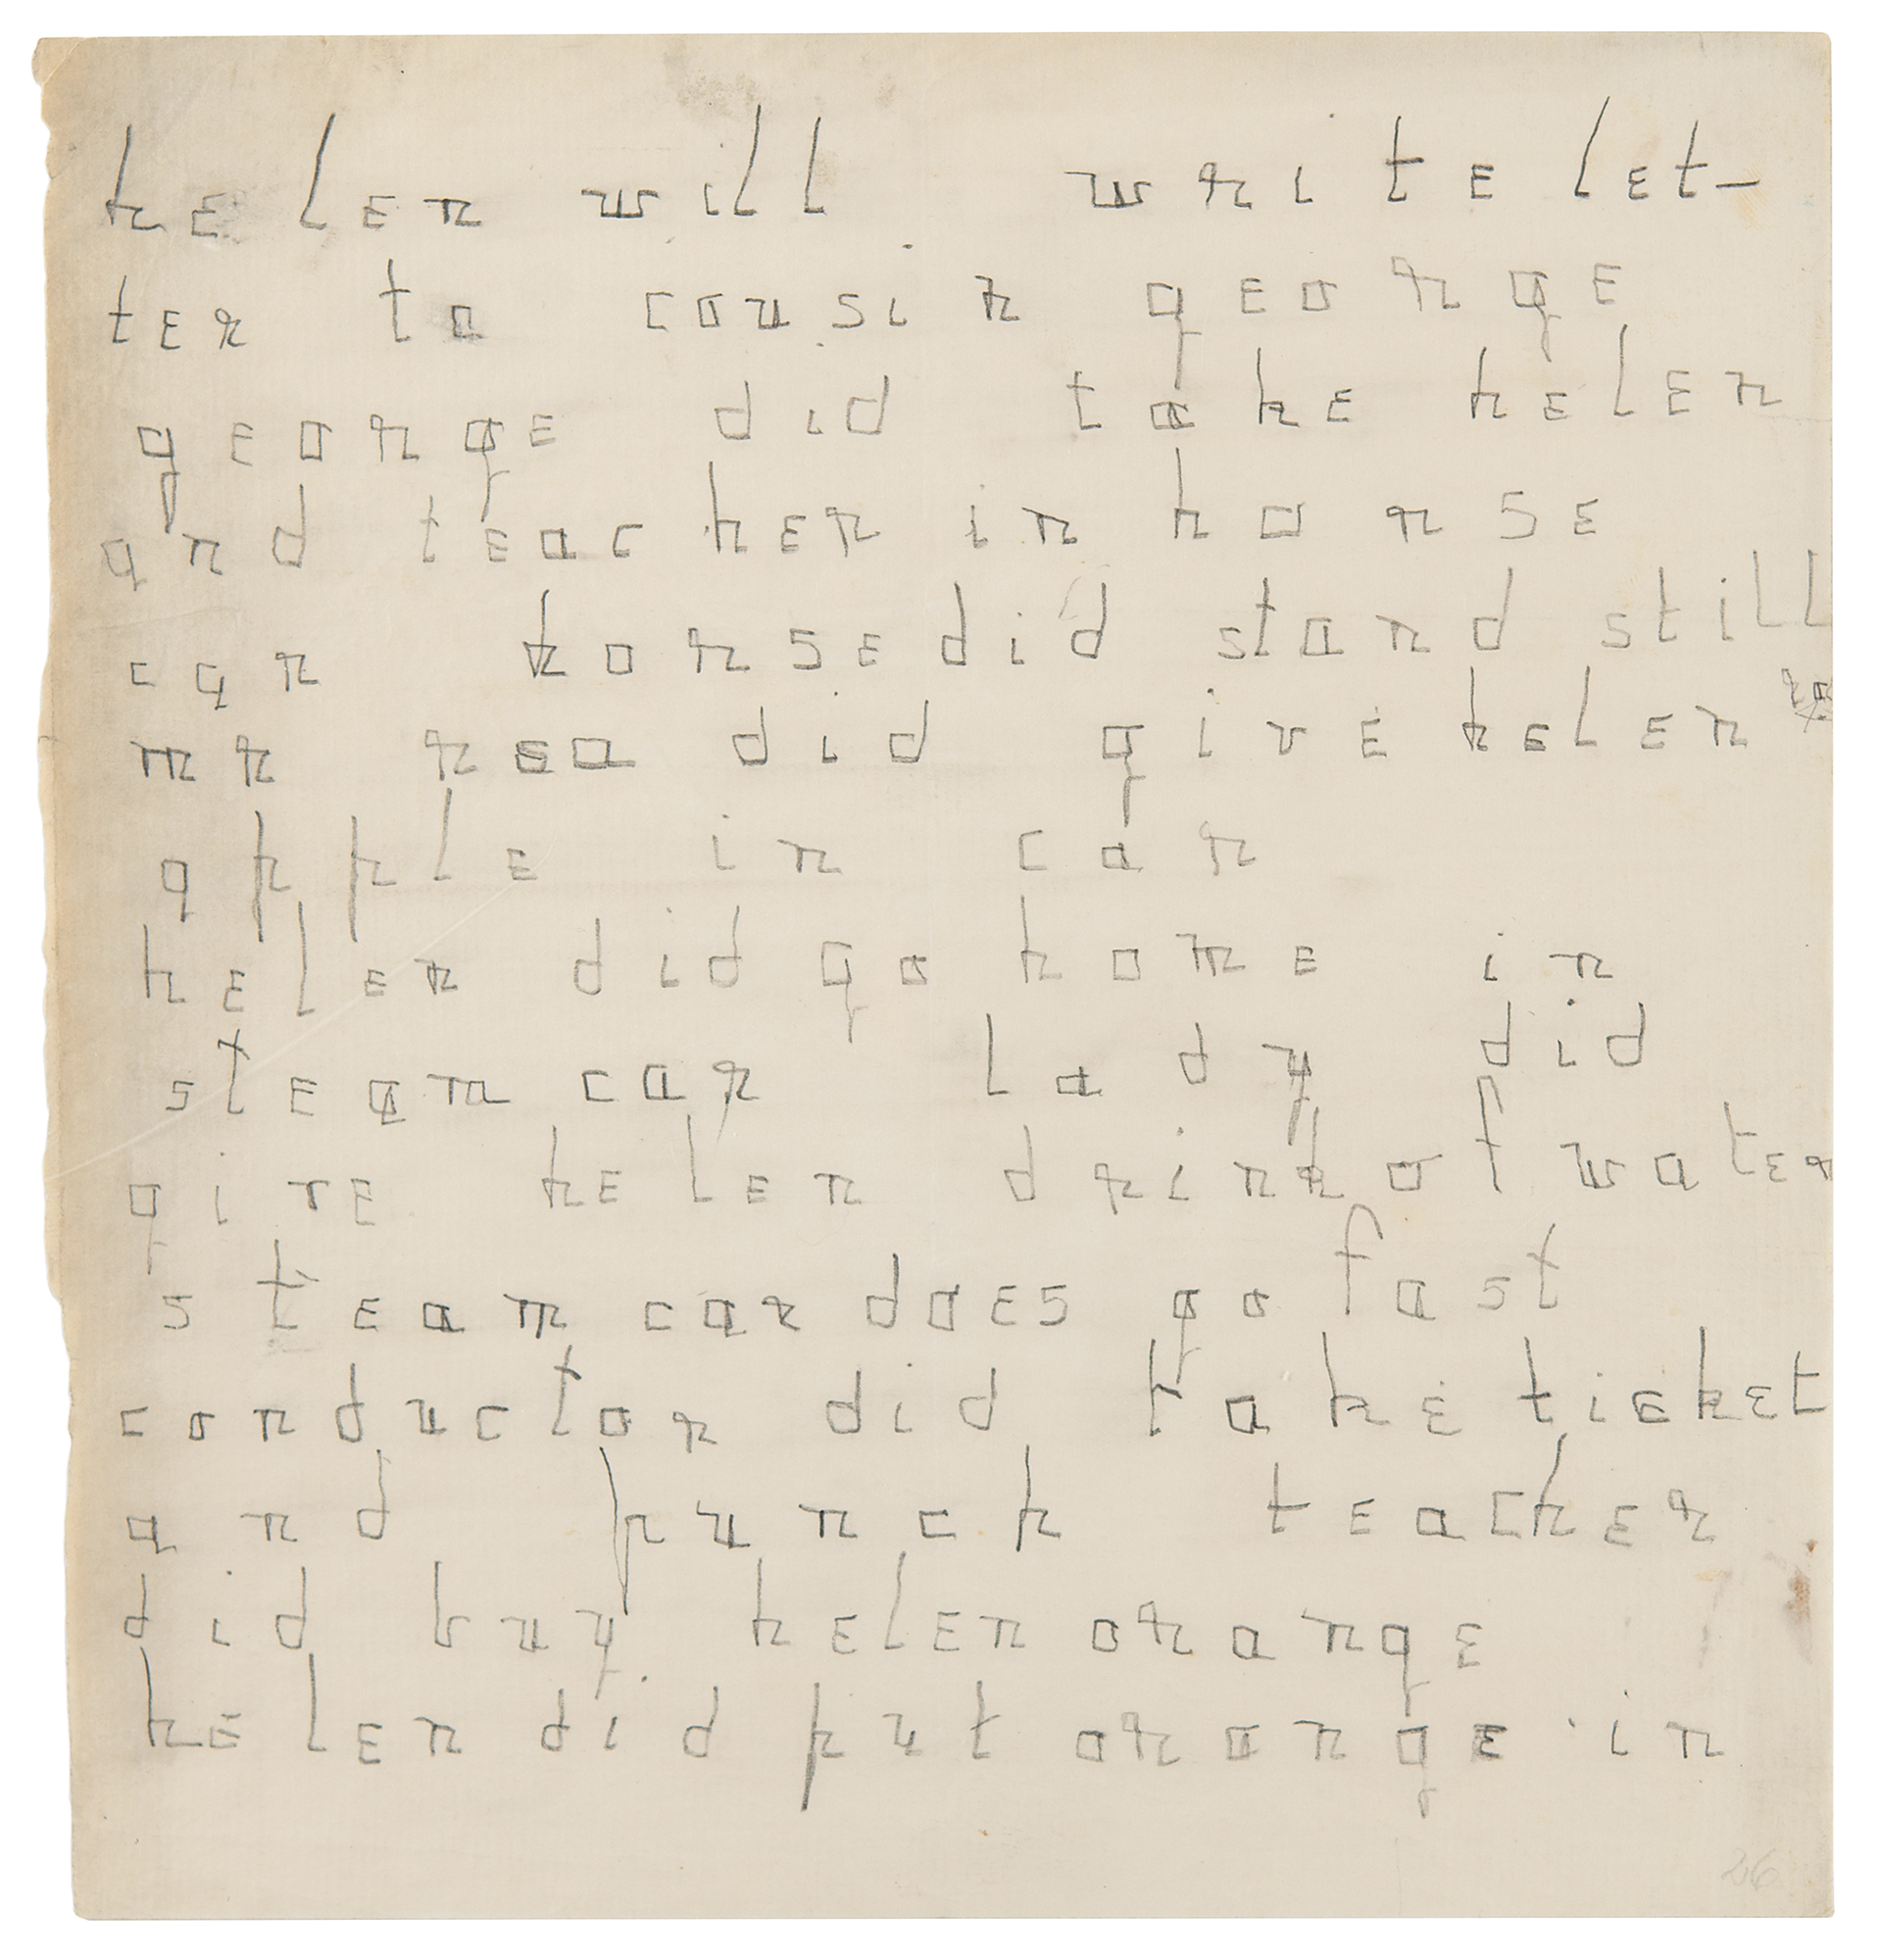 helen will write let-
ter to cousin george
george did take helen
and teacher in horse
car horse did stand still
mr did give helen
apple in car
helen did go home in
steam car lady did
give helen drink of water
steam car does go fast
conductor did take ticket
and punch teacher
did buy helen orange
helen did put orange in
26